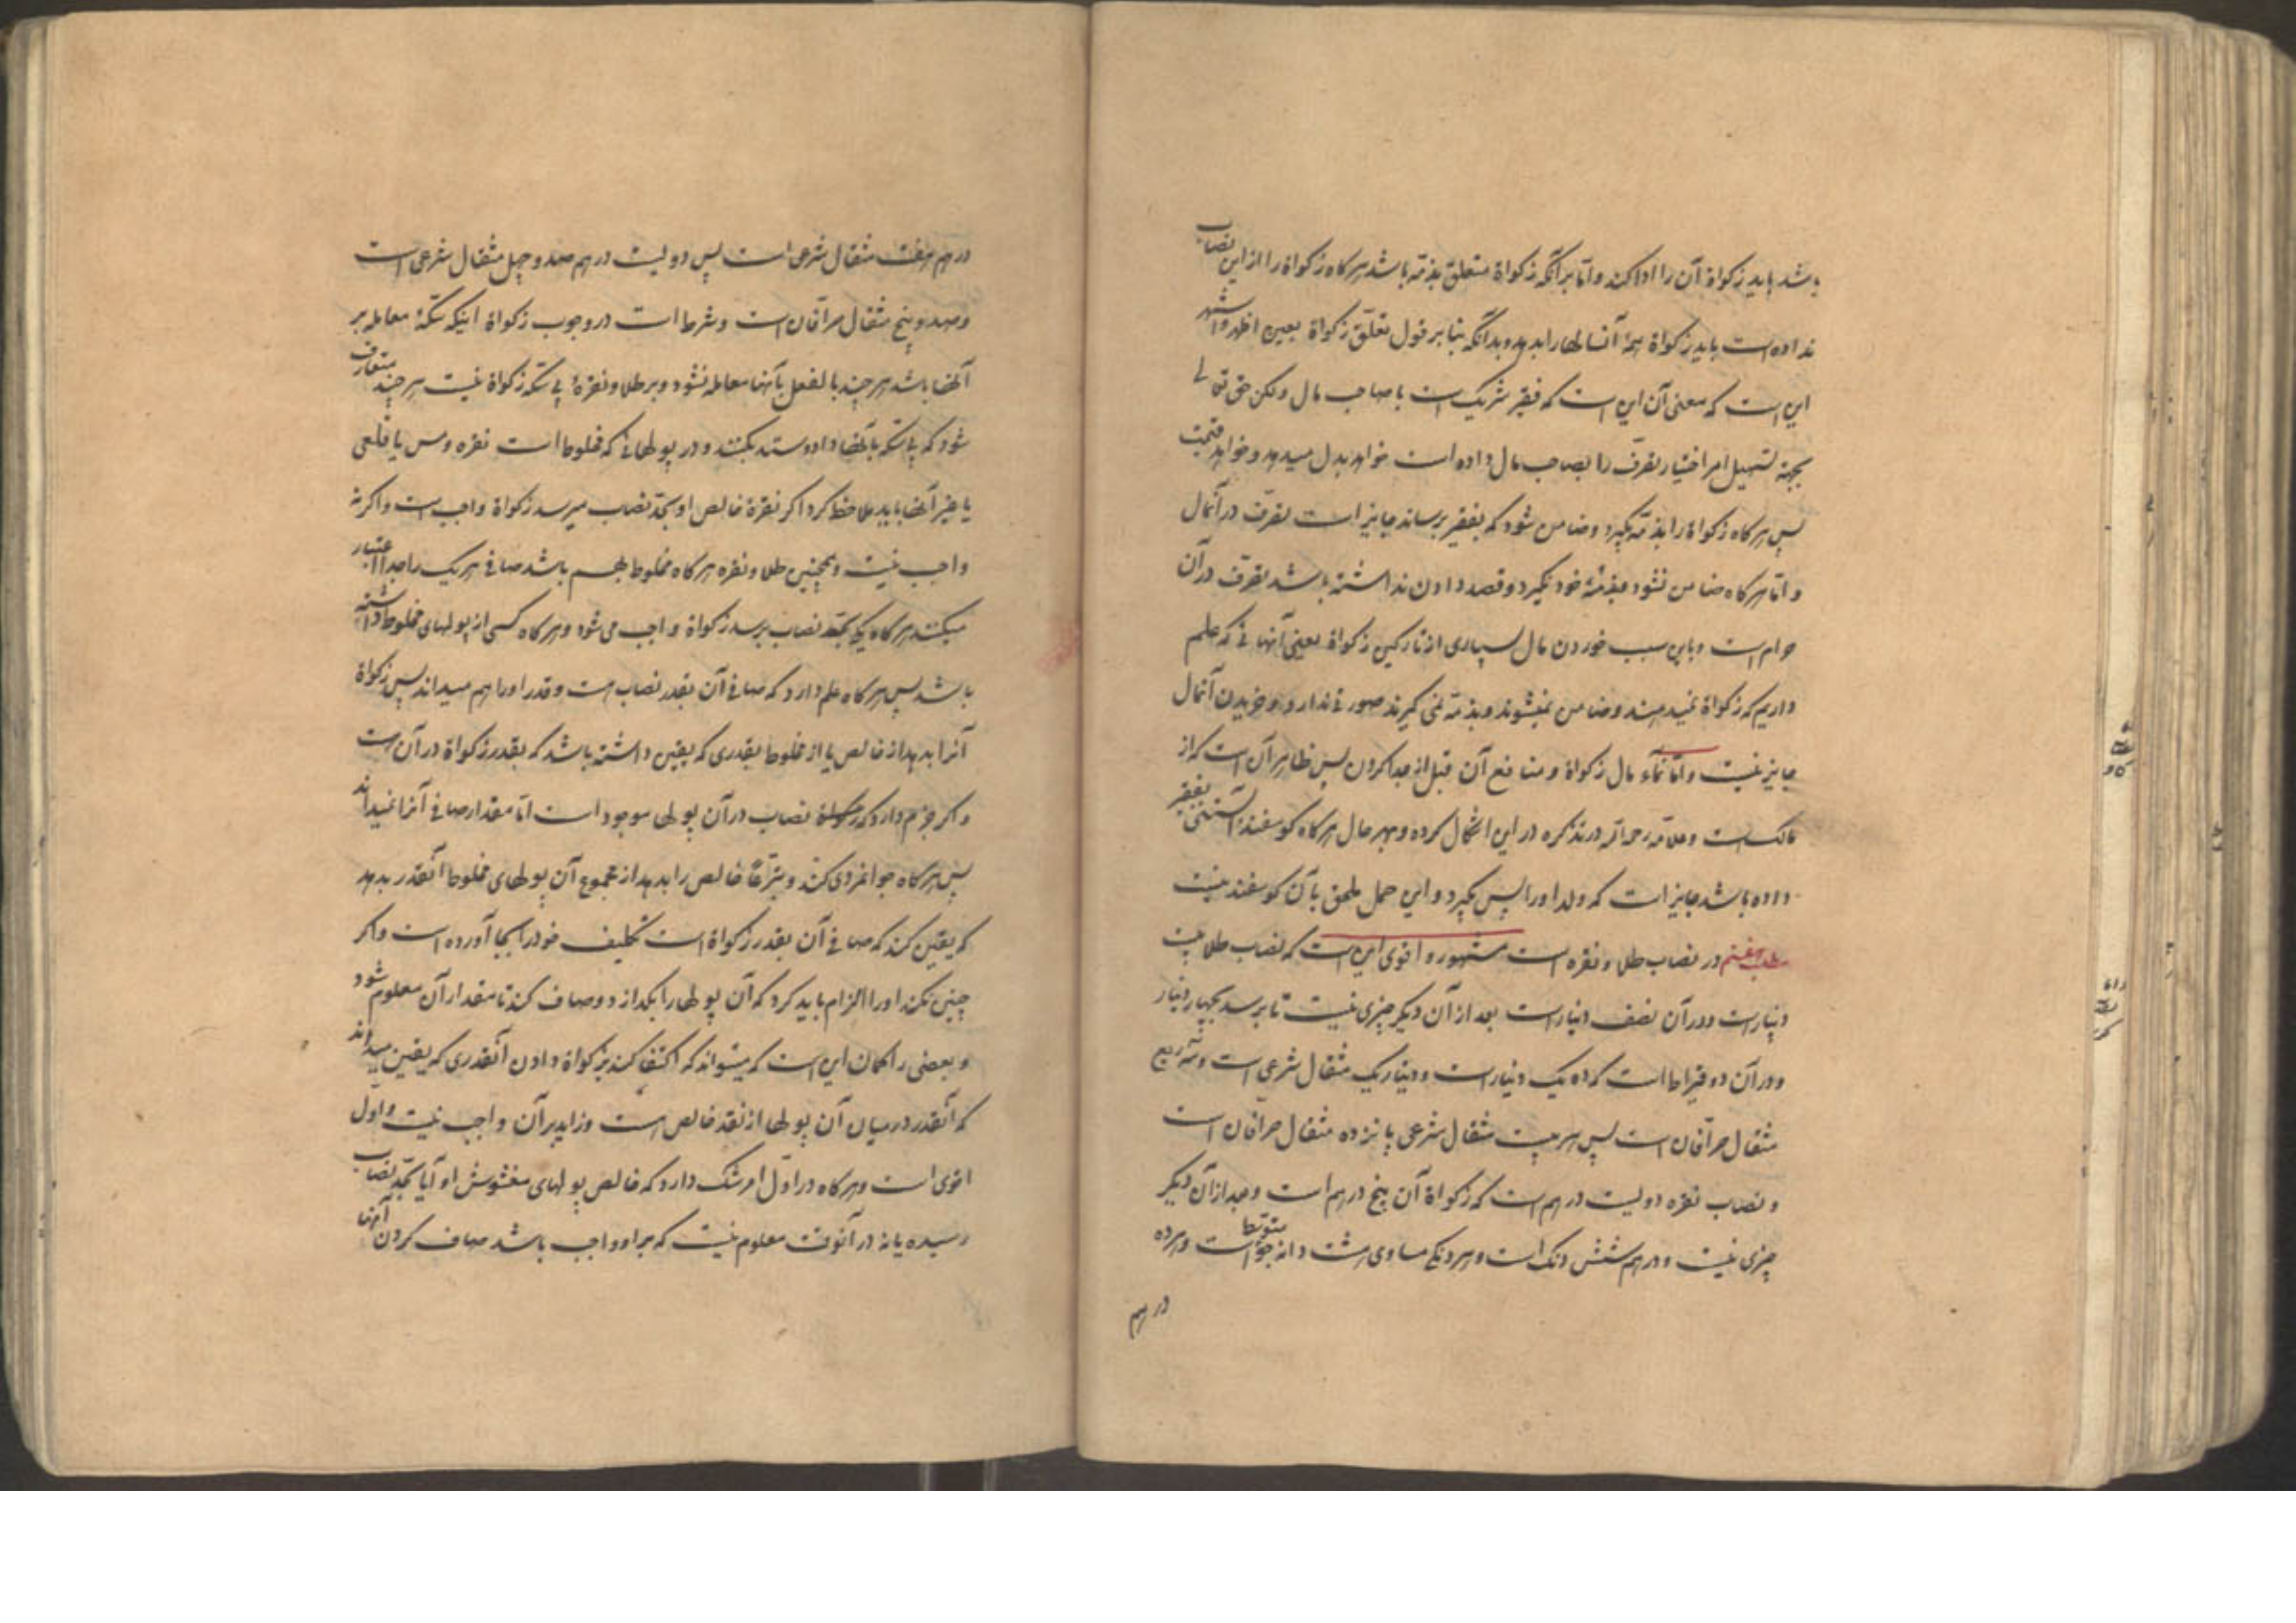 باشد باید زکواة آن را ادا کند و امّا بر آنکه زکواة متعلق بذمّه باشد هر کاه زکواة را از این نصاب
نداده است باید زکواة همهٔ آنسالها را بدهد و بدانکه بنا بر قول تعلّق زکواة بعین اظهر و اشهر
این است که معنی آن این است که فقیر شریک است با صاحب مال ولکن حق تعالی
بجهة تسهیل امر اختیار تصرّف را بصاحب مال داده است خواهد بدل میدهد و خواهد قیمت
پس هر کاه زکواة را بذمّه بکیرد و ضامن شود که بفقیر برساند جایز است تصرّف در آنمال
و امّا هر کاه ضامن نشود و بذمّهٔ خود نکیرد و قصد دادن نداشته باشد تصرّف در آن
حرام است و باین سبب خوردن مال بسیاری از تارکین زکواة یعنی آنهائی که علم
داریم که زکواة نمیدهند و ضامن نمیشوند و بذمّه نمی کیرند صورتی ندارد و خریدن آنمال
جایز نیست و امّا نمآء مال زکواة و منافع آن قبل از جدا کردن پس ظاهر آن است که از
مالک است و علّامه رحمه الله در تذکره در این اشکال کرده و بهر حال هر کاه کوسفند آبستنی بفقیر
داده باشد جایز است که ولد او را پس بکیرد و این حمل ملحق بآن کوسفند نیست
مطلب هفتم در نصاب طلا و نقره است مشهور و اقوی این است که نصاب طلا بیست
دینار است و در آن نصف دینار است بعد از آن دیکر چیزی نیست تا برسد بچهار دینار
و در آن دو قیراط است که ده یک دینار است و دینار یک مثقال شرعی است و سه ربع
مثقال صرّافان است پس هر بیست مثقال شرعی پانزده مثقال صرّافان است
و نصاب نقره دویست درهم است که زکواة آن پنج درهم است و بعد از آن دیکر
چیزی نیست و درهم شش دنک است و هر دنکی مساوی هشت دانه جو متوسّط است و هر ده
درهم
درهم هفت مثقال شرعی است پس دویست درهم صد و چهل مثقال شرعی است
و صد و پنج مثقال صرّافان است و شرط است در وجوب زکواة اینکه سکّهٔ معامله بر
آنها باشد هر چند بالفعل بآنها معامله نشود و بر طلا و نقرهٔ بی سکّه زکواة نیست هر چند متعارف
شود که بی سکّه بآنها داد و ستد بکنند و در پولهائی که مخلوط است نقره و مس یا قلعی
یا غیر آنها باید ملاحظه کرد اکر نقرهٔ خالص او بحدّ نصاب میرسد زکواة واجب است و اکر نه
واجب نیست و همچنین طلا و نقره هر کاه مخلوط بهم باشد صافی هر یک را جدا اعتبار
میکنند هر کاه یکی بحدّ نصاب برسد زکواة واجب می شود و هر کاه کسی از پولهای مخلوط داشته
باشد پس هر کاه علم دارد که صافی آن بقدر نصاب هست و قدر او را هم میداند پس زکواة
آنرا بدهد از خالص یا از مخلوط بقدری که یقین داشته باشد که بقدر زکواة در آن است
و اکر جزم دارد که نصاب در آن پولها موجود است امّا مقدار صافی آنرا نمیداند
پس هر کاه جوانمردی کند و تبرّعاً خالص را بدهد از مجموع آن پولهای مخلوط آنقدر بدهد
که یقین کند که صافی آن بقدر زکواة است تکلیف خود را بجا آورده است و اکر
چنین نکند او را الزام باید کرد که آن پولها را بکدازد و صاف کند تا مقدار آن معلوم شود
و بعضی را کمان این است که میتواند که اکتفا کند بزکواة دادن آنقدری که یقین میداند
که آنقدر در میان آن پولها از نقد خالص هست و زاید بر آن واجب نیست و اول
اقوی است و هر کاه در اوّل امر شک دارد که خالص پولهای مغشوش او آیا بحدّ نصاب
رسیده یا نه در آنوقت معلوم نیست که بر او واجب باشد صاف کردن آنها